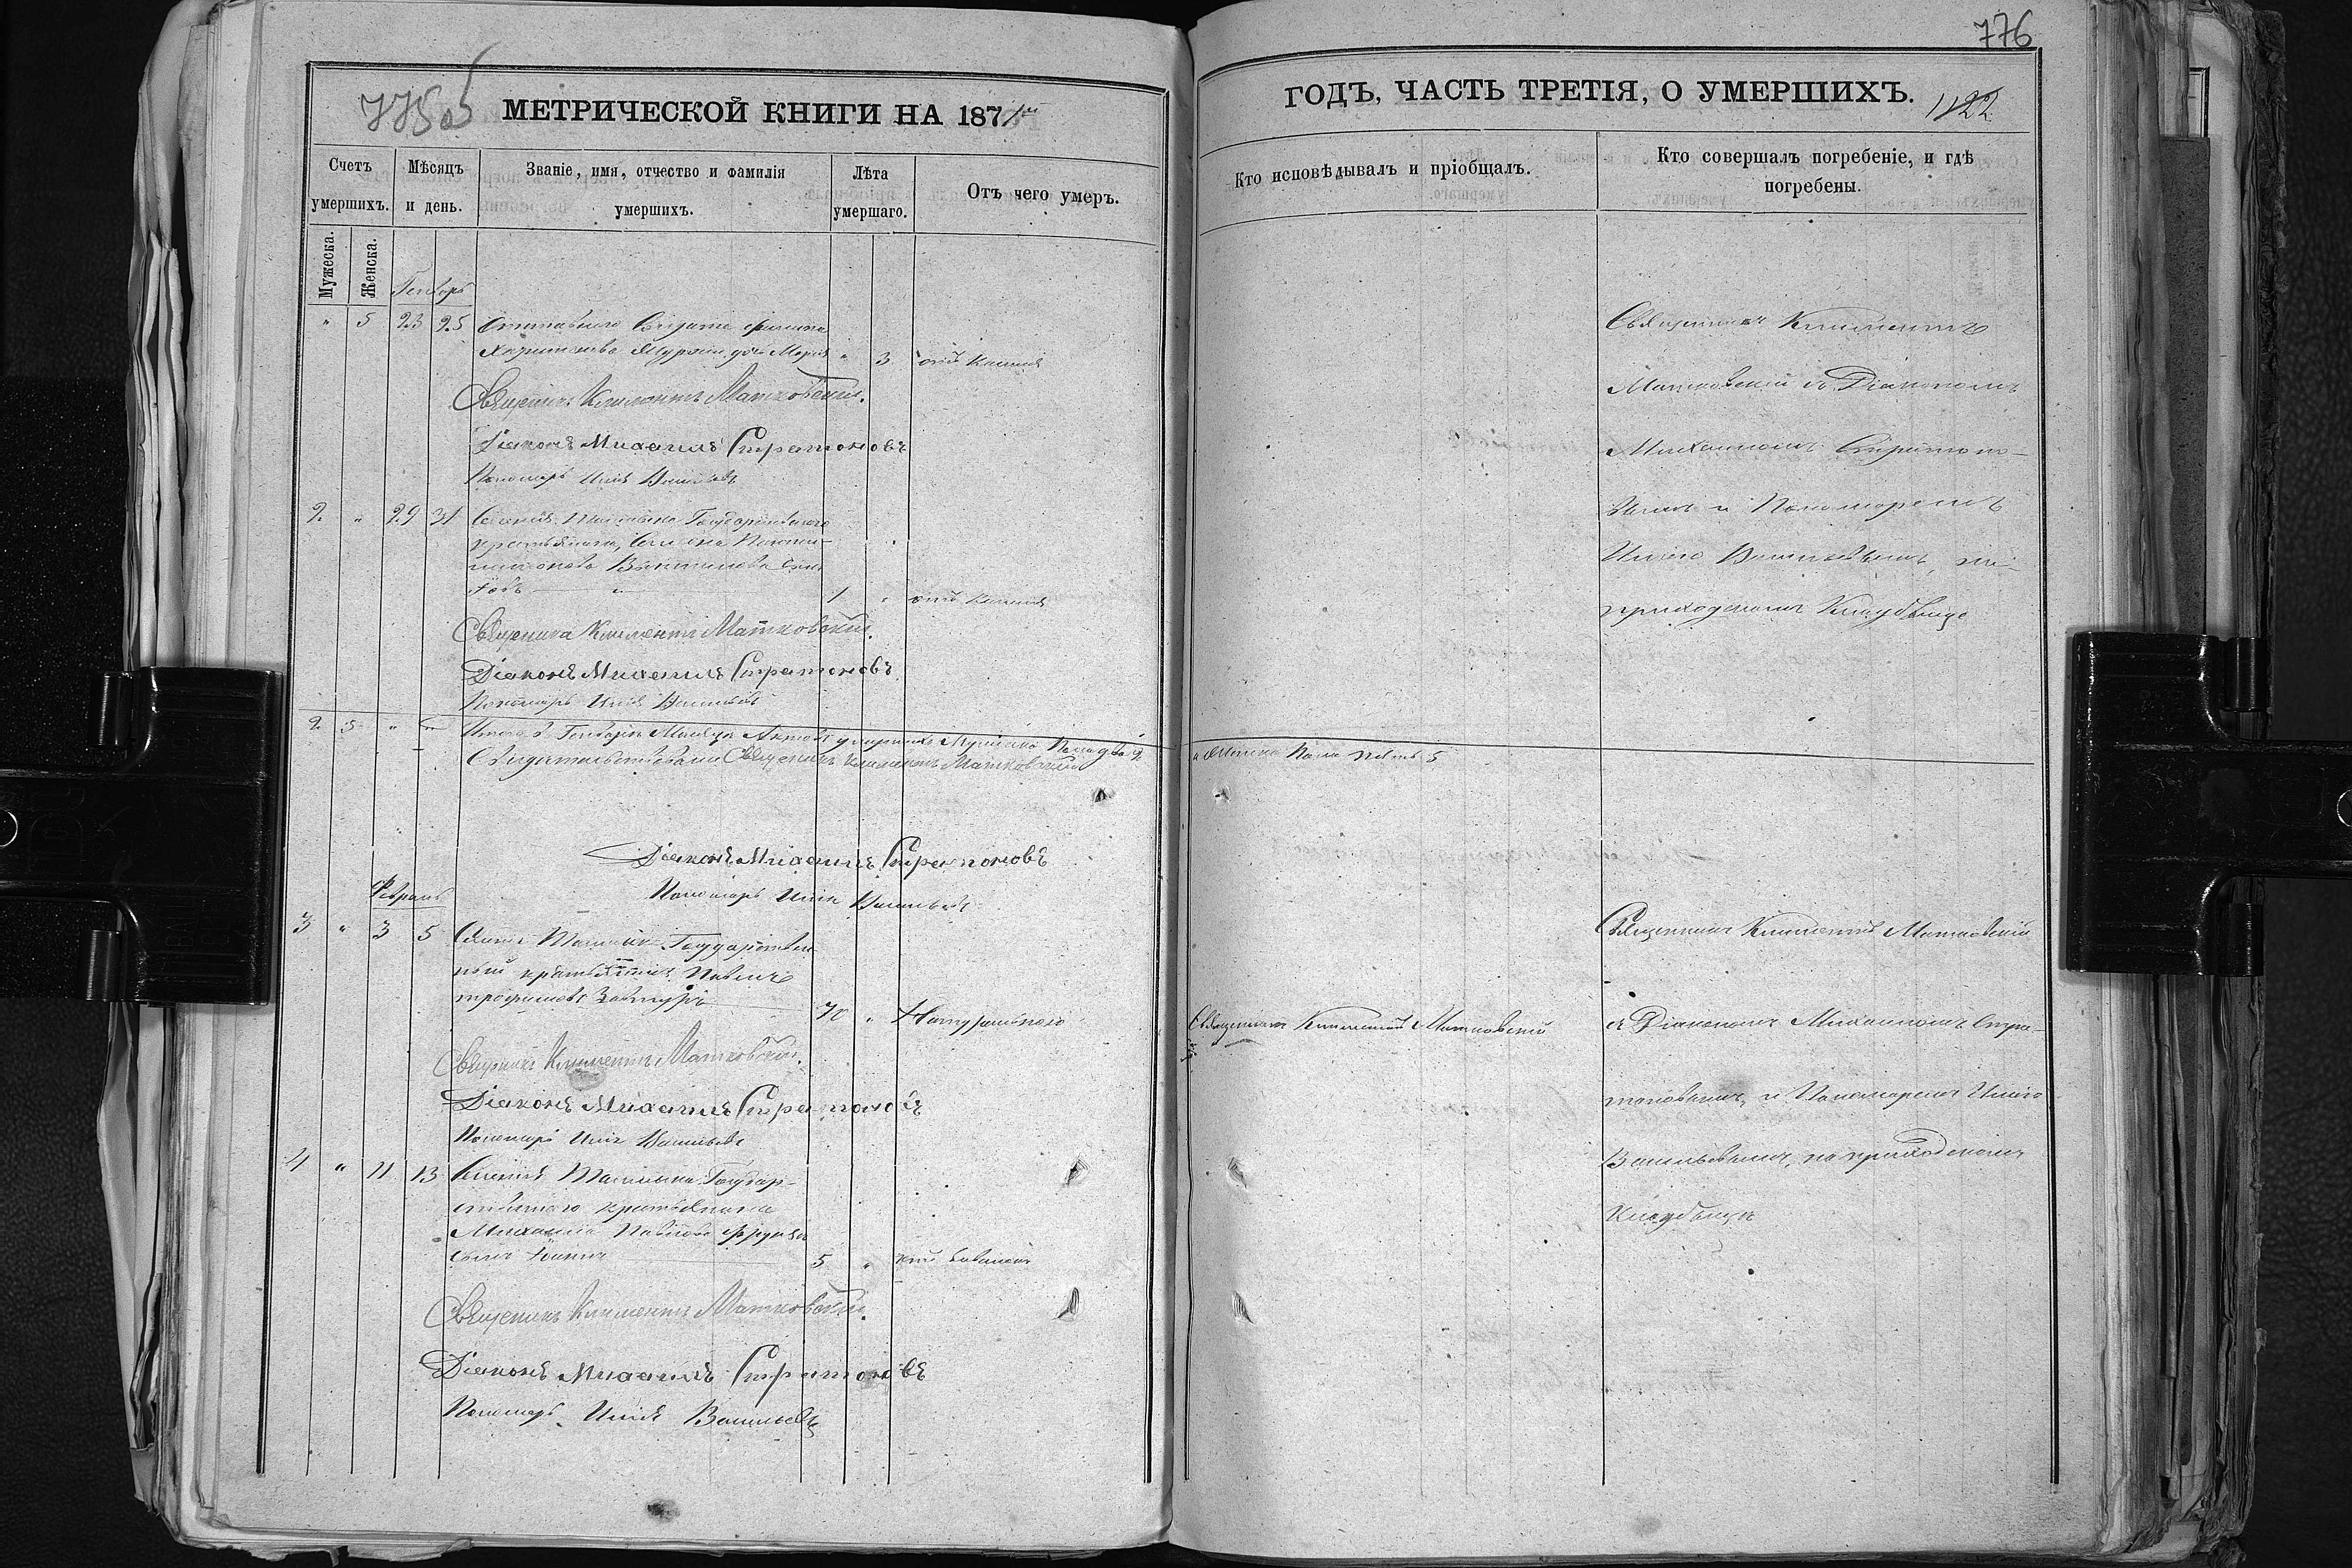 775 об
МЕТРИЧЕСКОЙ КНИГИ НА 1871
Счетъ умершихъ.
Мѣсяцъ и день.
Званіе, имя, отчество и фамилія умершихъ.
Лѣта умершаго.
Отъ чего умеръ.
Мужеска.
Женска.
Генворъ
" 5 23 25 Отставнаго Солдата
дочь Марія " 3 отъ Кашля
Священикъ Климентъ Матковскій.
Діаконъ Михаилъ Стратоновъ
Пономарь Илія Васильевъ
2 " 29 31 Государственнаго
крестьянина,
сынъ
1 " отъ Кашля
Священика Климентъ Матковскій.
Діаконъ Михаилъ Стратоновъ
Пономарь Илія Васильевъ
2 5 " " Итого в Генварѣ Мѣсяцѣ умершихъ Мужеска Пола два 2
Свидетельствовали Священикъ Климентъ Матковскій
Діаконъ Михаилъ Стратоновъ
Пономарь Илія Васильевъ
Февраль
3 " 3 5 Государствен-
ный крестьянинъ Павелъ
Трофимовъ
70 " Натурально
Священикъ Климентъ Матковскій.
Діаконъ Михаилъ Стратоновъ
Пономарь Илія Васильевъ
4 " 11 13 Селенія Государ-
ственнаго крестьянина
Михаила Павлова
сынъ Іоаннъ 5 "
Священикъ Климентъ Матковскій.
Діаконъ Михаилъ Стратоновъ
Пономарь Илія Васильевъ
776
ГОДЪ, ЧАСТЬ ТРЕТІЯ, О УМЕРШИХЪ.
1122
Кто исповѣдывалъ и пріобщалъ.
Кто совершалъ погребеніе, и гдѣ погребены.
Священикъ Климентъ
Матковскій съ Діакономъ
Михаиломъ Стратоно-
вымъ и Пономаремъ
Иліею Васильевымъ, на
приходскомъ Кладбище
и Женска Пола пять 5
Священникъ Климентъ Матковскій
Священникъ Климентъ Матковскій
съ Діакономъ Михаиломъ Стра-
тоновымъ, и Пономаремъ Иліею
Васильевымъ, на приходскомъ
Кладбищѣ